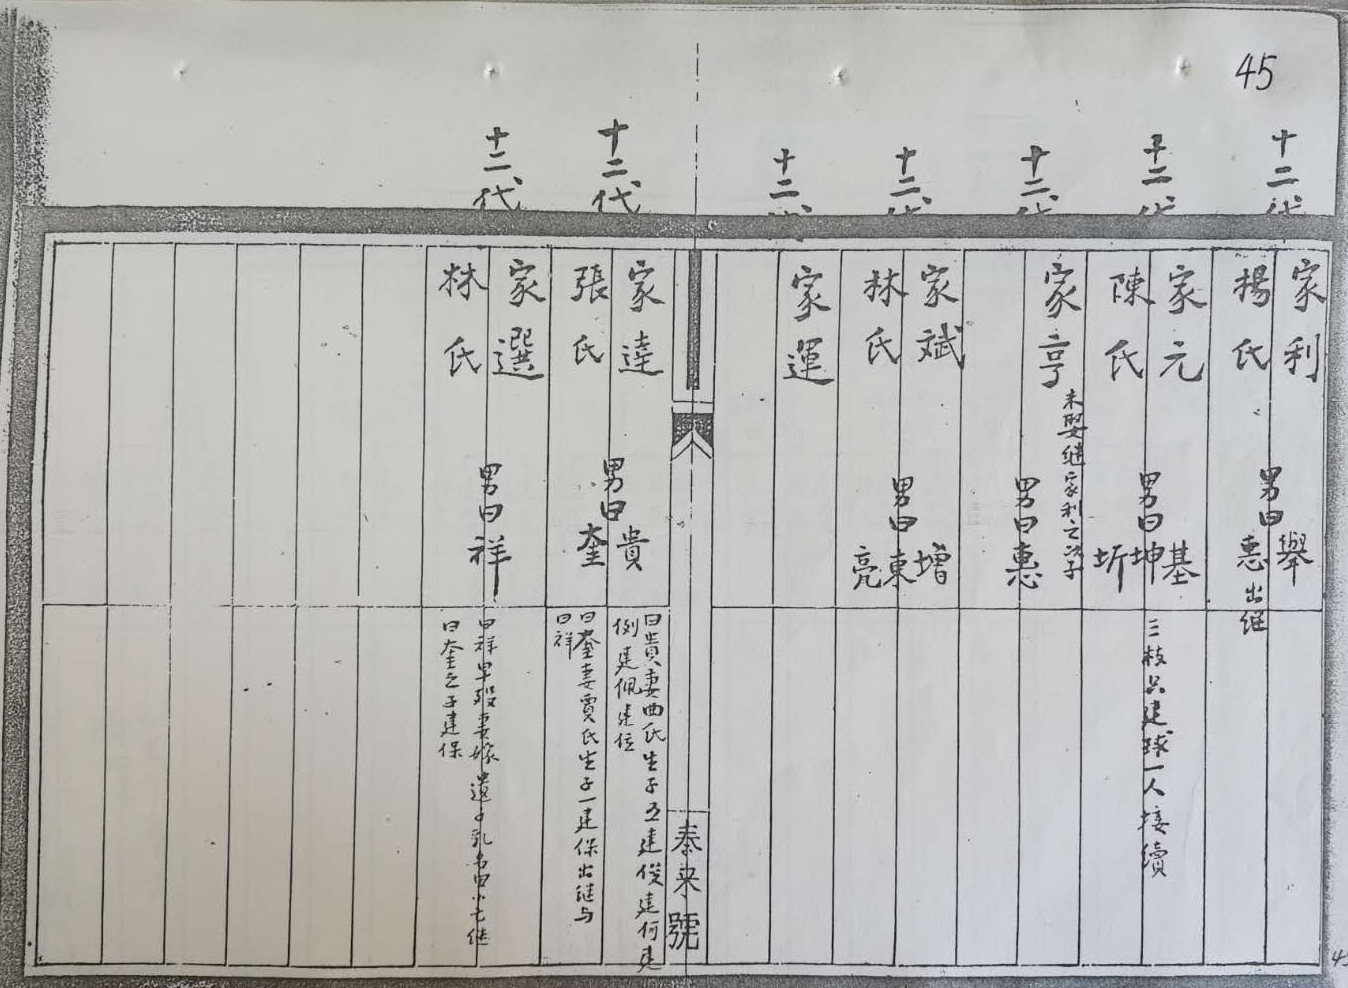 45
十二代
家利
楊氏
男曰
舉
惠出继
十二代
家元
陳氏
男曰
基
坤
圻
三枝只建球一人接續
十二代
家亨
未娶继家利之次子
男曰惠
十二代
家斌
林氏
男曰
增
東
亮
十二代
家運
泰来號
十二代
家逹
張氏
男曰
貴
奎
曰貴妻曲氏生子五建俊建何建
例建佩建位
曰奎妻賈氏生子一建保出继与
曰祥
十二代
家選
林氏
男曰祥
曰祥早殁妻嫁遺子乳名曰小七继
曰奎之子建保